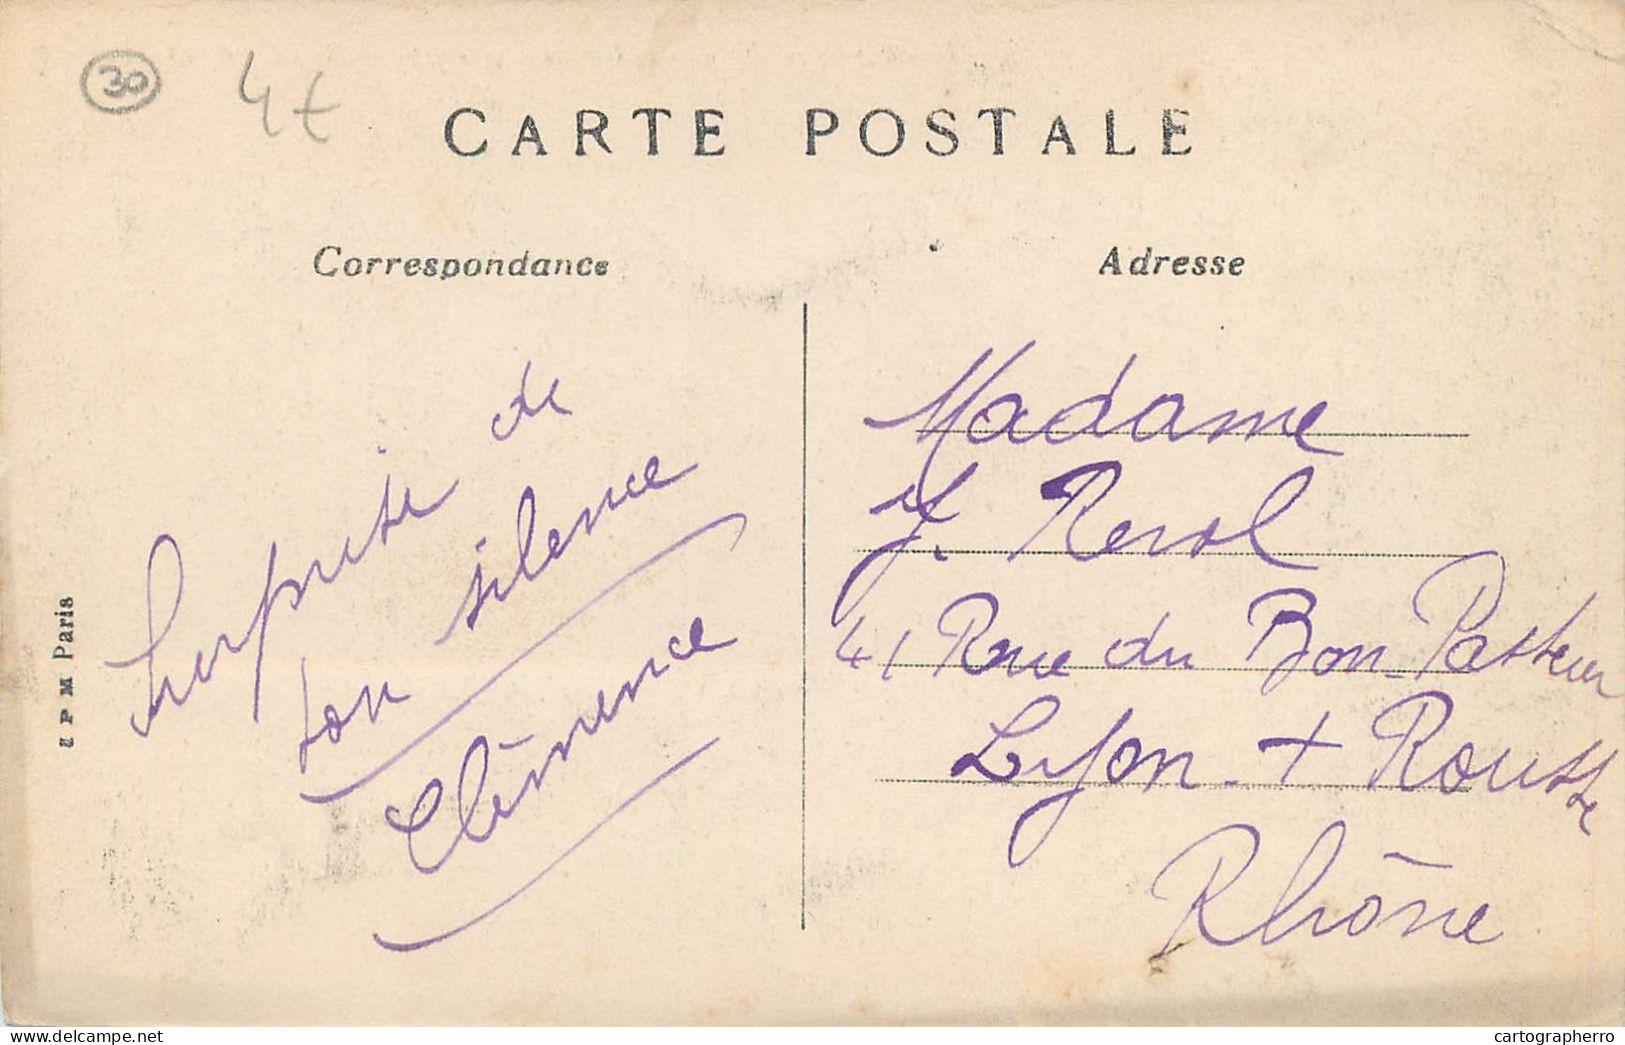 30
4€
CARTE POSTALE
Correspondance
Adresse
Surprise de
ton silence
Clémence
Madame
J. Revol
41 Rue du Bon-Pasteur
Lyon - + Rousse
Rhône
P M Paris
www.delcampe.net
cartographerro